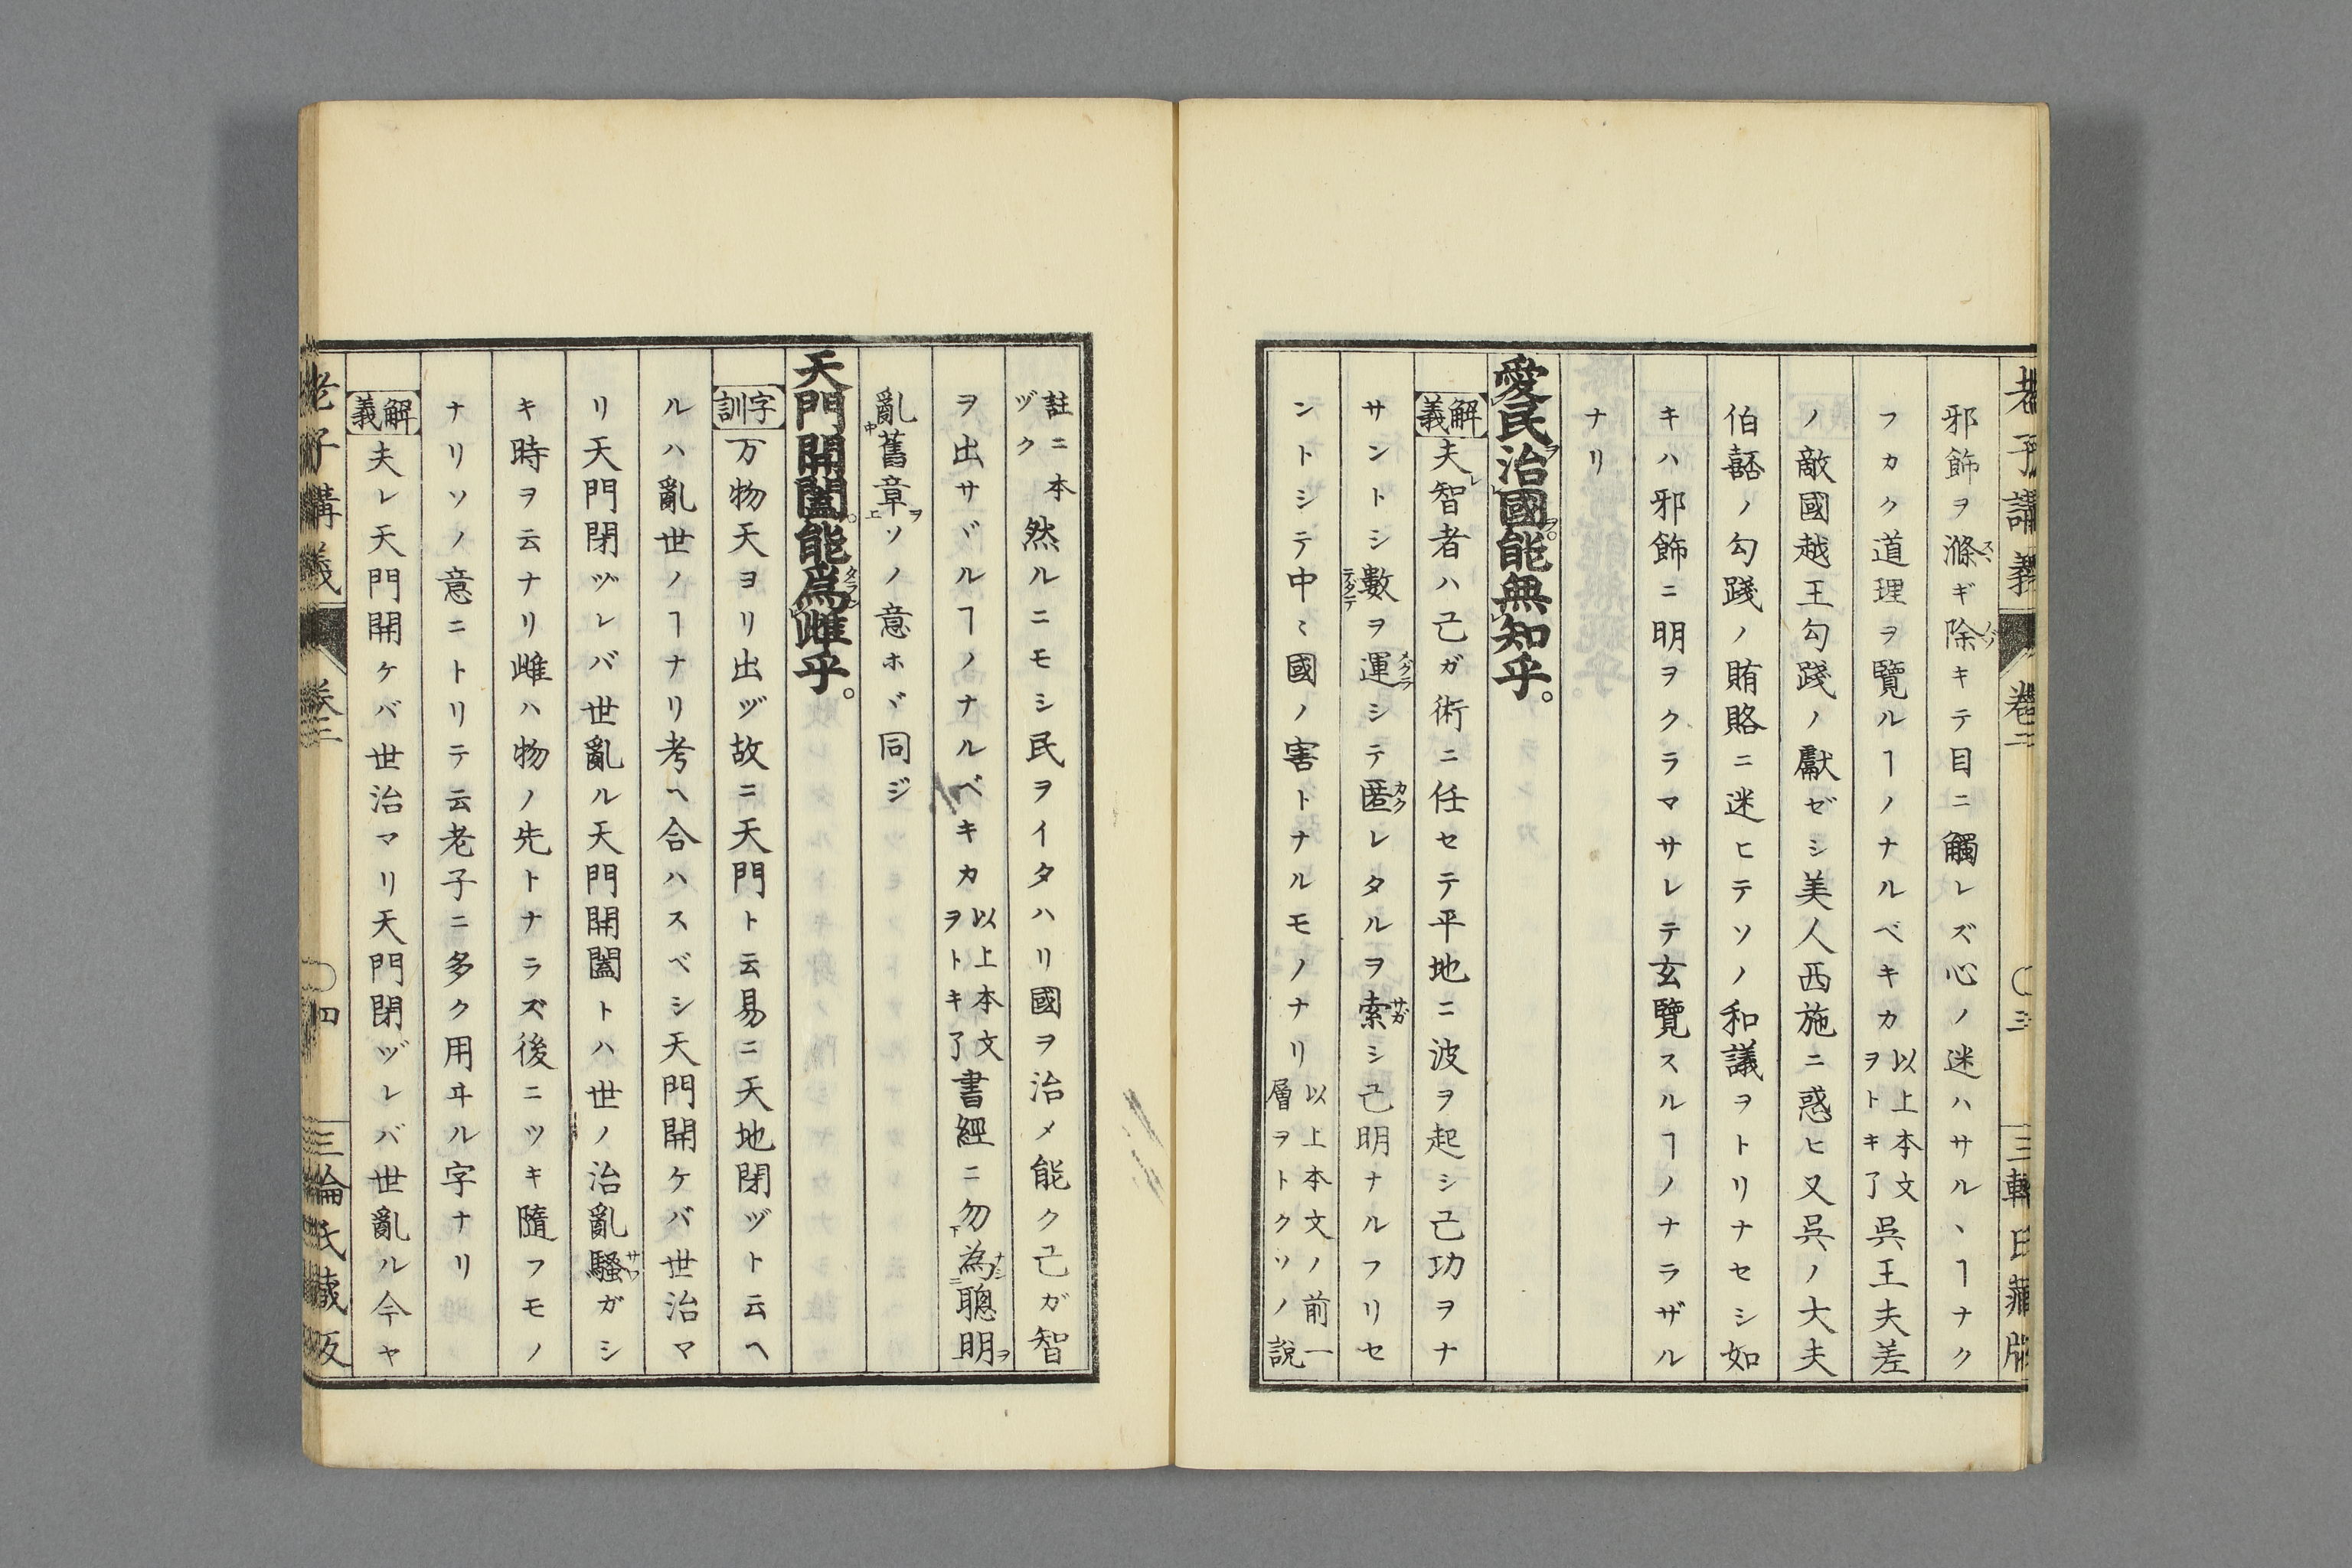 老子講義 卷二 〇三 三輪氏藏版
邪飾ヲ滌ギ除キテ目ニ觸レズ心ノ迷ハサルヽヿナク
フカク道理ヲ覽ルヿノナルベキカ以上本文ヲトキ了吳王夫差
ノ敵國越王勾踐ノ獻ゼシ美人西施ニ惑ヒ又吳ノ大夫
伯嚭ノ勾踐ノ賄賂ニ迷ヒテソノ和議ヲトリナセシ如
キハ邪飾ニ明ヲクラマサレテ玄覽スルヿノナラザル
ナリ
愛民治國能無知乎。
解義 夫智者ハ己ガ術ニ任セテ平地ニ波ヲ起シ己功ヲナ
サントシ數ヲ運シテ匿レタルヲ索シ己明ナルフリセ
ントシテ中〻國ノ害トナルモノナリ以上本文ノ前一層ヲトクソノ說
註ニ本ヅク然ルニモシ民ヲイタハリ國ヲ治メ能ク己ガ智
ヲ出サヾルヿノナルベキカ以上本文ヲトキ了書經ニ勿下為二聰明ヲ
亂中舊章上ヲソノ意ホヾ同ジ
天門開闔。能爲雌乎。
字訓 万物天ヨリ出ヅ故ニ天門ト云易ニ天地閉ヅト云ヘ
ルハ亂世ノヿナリ考ヘ合ハスベシ天門開ケバ世治マ
リ天門閉ヅレバ世亂ル天門開闔トハ世ノ治亂騷ガシ
キ時ヲ云ナリ雌ハ物ノ先トナラズ後ニツキ隨フモノ
ナリソノ意ニトリテ云老子ニ多ク用ヰル字ナリ
解義 夫レ天門開ケバ世治マリ天門閉ヅレバ世亂ル今ヤ
老子講義 卷二 〇四 三輪氏藏版